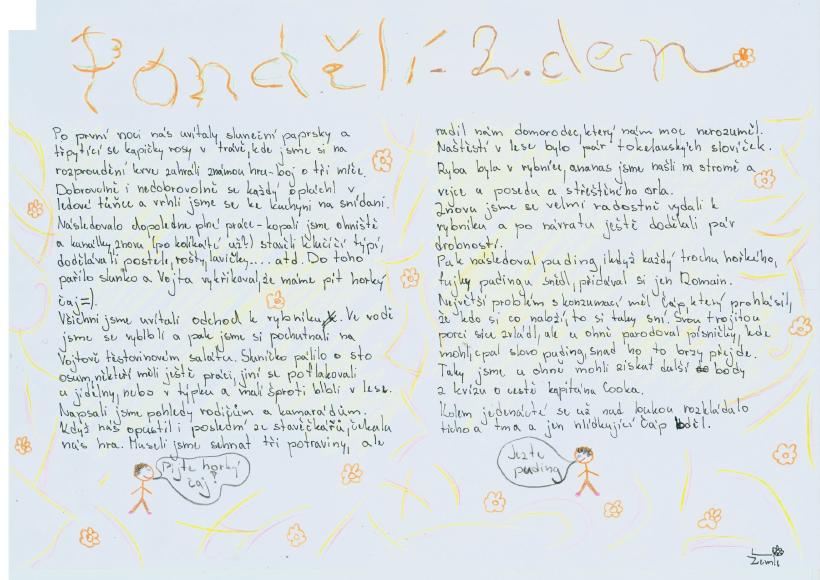 Pondělí - 2. den
Po první noci nás uvítaly sluneční paprsky a
třpytící se kapičky rosy v trávě, kde jsme si na
rozproudění krve zahráli známou hru - boj o tři míče.
Dobrovolně i nedobrovolně se každý opláchl v
ledové tůňce a vrhli jsme se ke kuchyni na snídani.
Následovalo dopoledne plné práce - kopali jsme ohniště
a kanálky, znovu (po kolikáté už?) stavěli klučičí týpí,
dodělávali postele, rošty, lavičky,.... atd. Do toho
pařilo slunko a Vojta vykřikoval, že máme pít horký
čaj =).
Všichni jsme uvítali odchod k rybníku. Ve vodě
jsme se vyblbli a pak jsme si pochutnali na
Vojtově těstovinovém salátu. Sluníčko pálilo o sto
osum, někteří měli ještě práci, jiní se potlakovali
u jídelny, nebo v týpku a malí šproti blbli v lese.
Napsali jsme pohledy rodičům a kamarádům.
Když nás opustil i poslední ze stavěčkářů, čekala
nás hra. Museli jsme sehnat tři potraviny, ale
radil nám domorodec, který nám moc nerozuměl.
Naštěstí v lese bylo pár tokelauských slovíček.
Ryba byla v rybníce, ananas jsme našli na stromě a
vejce u posedu a střeštěného orla.
Znovu jsme se velmi radostně vydali k
rybníku a po návratu ještě dodělali pár
drobností.
Pak následoval puding, i když každý trochu hořkého,
fujky pudingu snědl, přidával si jen Romain.
Největší problém s konzumací měl Čáp, který prohlásil,
že kdo si co naloží, to si taky sní. Svou trojitou
porci sice zvládl, ale u ohně parodoval písničky, kde
mohl, cpal slovo puding, snad ho to brzy přejde.
Taky jsme u ohně mohli získat další body
z kvízu o cestě kapitána Cooka.
Kolem jedenácté se už nad loukou rozkládalo
ticho a tma a jen hlídkující Čáp bděl.
Pijte horký
čaj!
Jezte
puding